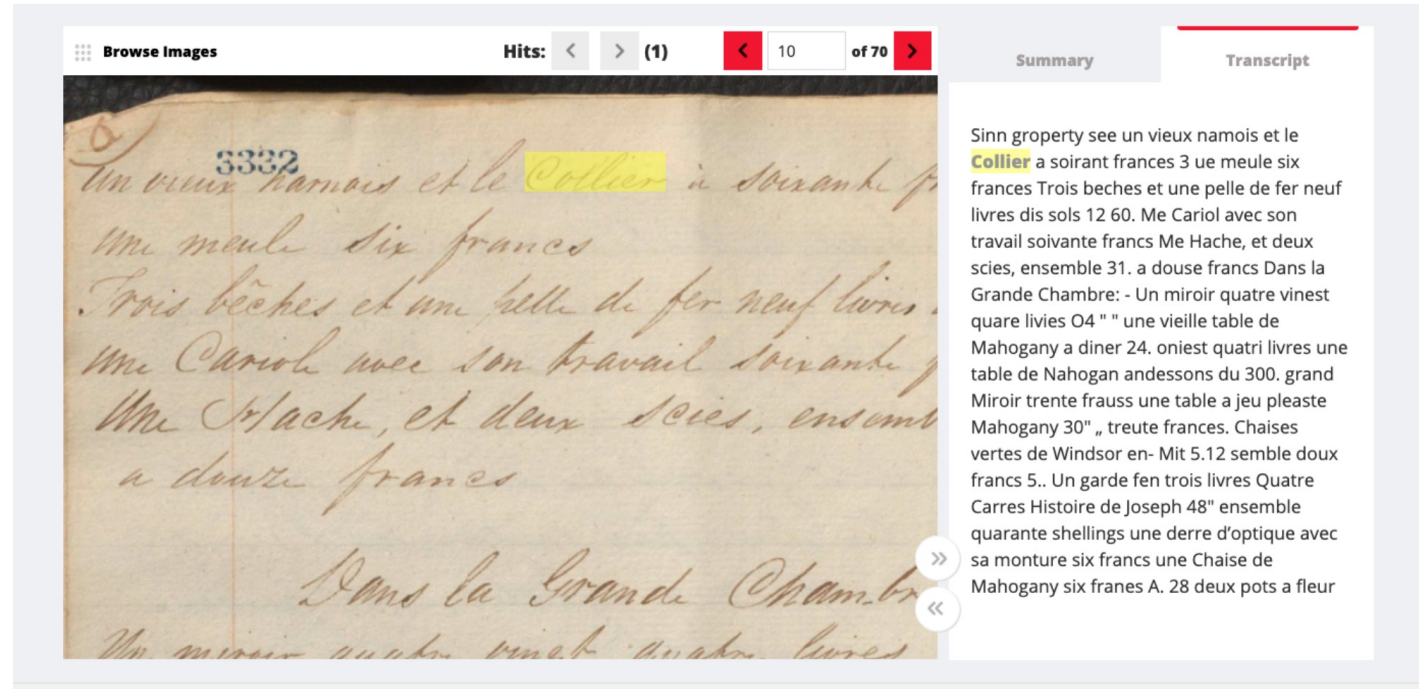 Browse Images
Hits: (1)
10 of 70
3332
un vieux harnais et le Collier a soixante fr
une meule six francs
Trois bêches et une pelle de fer neuf livres
une Cariole avec son travail soixante f
Une Hache, et deux scies, ensemb
a douze francs
Dans la Grande Chambr
Un miroir quatre vingt quatre livres
Summary
Transcript
Sinn groperty see un vieux namois et le
Collier a soirant frances 3 ue meule six
frances Trois beches et une pelle de fer neuf
livres dis sols 12 60. Me Cariol avec son
travail soivante francs Me Hache, et deux
scies, ensemble 31. a douse francs Dans la
Grande Chambre: - Un miroir quatre vinest
quare livies O4 " " une vieille table de
Mahogany a diner 24. oniest quatri livres une
table de Nahogan andessons du 300. grand
Miroir trente frauss une table a jeu pleaste
Mahogany 30" „ treute frances. Chaises
vertes de Windsor en- Mit 5.12 semble doux
francs 5.. Un garde fen trois livres Quatre
Carres Histoire de Joseph 48" ensemble
quarante shellings une derre d’optique avec
sa monture six francs une Chaise de
Mahogany six franes A. 28 deux pots a fleur